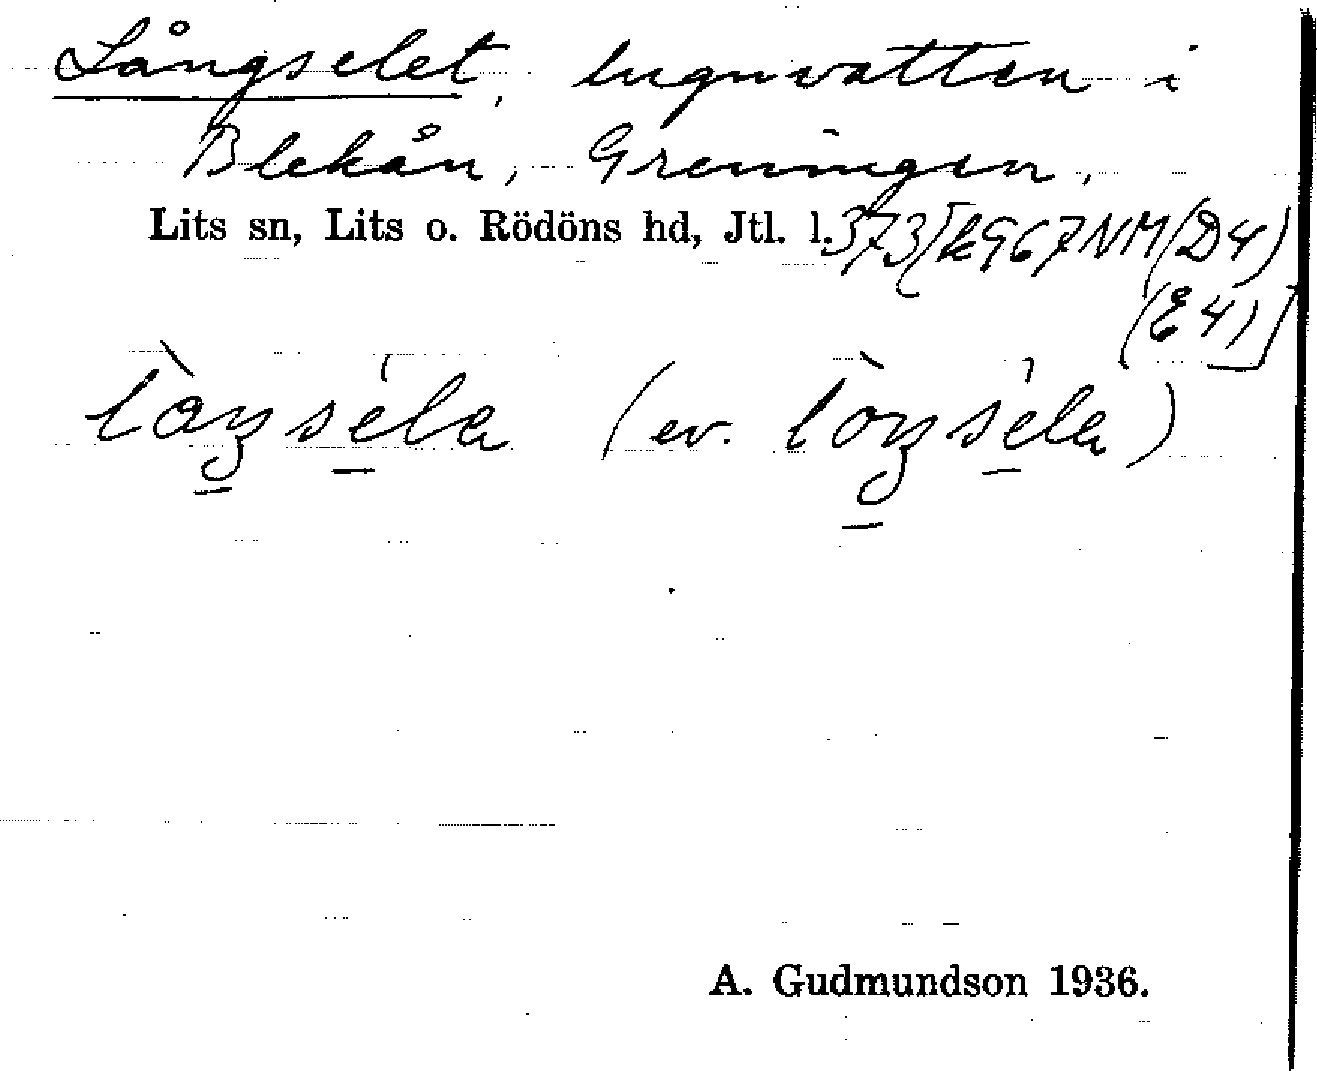 Långselet, lugnvatten i
Blekån, Greningen.
Lits sn, Lits o. Rödöns hd, Jtl. l. 373[k967NM(D4)
(E4)]
(ev.
A. Gudmundson 1936.